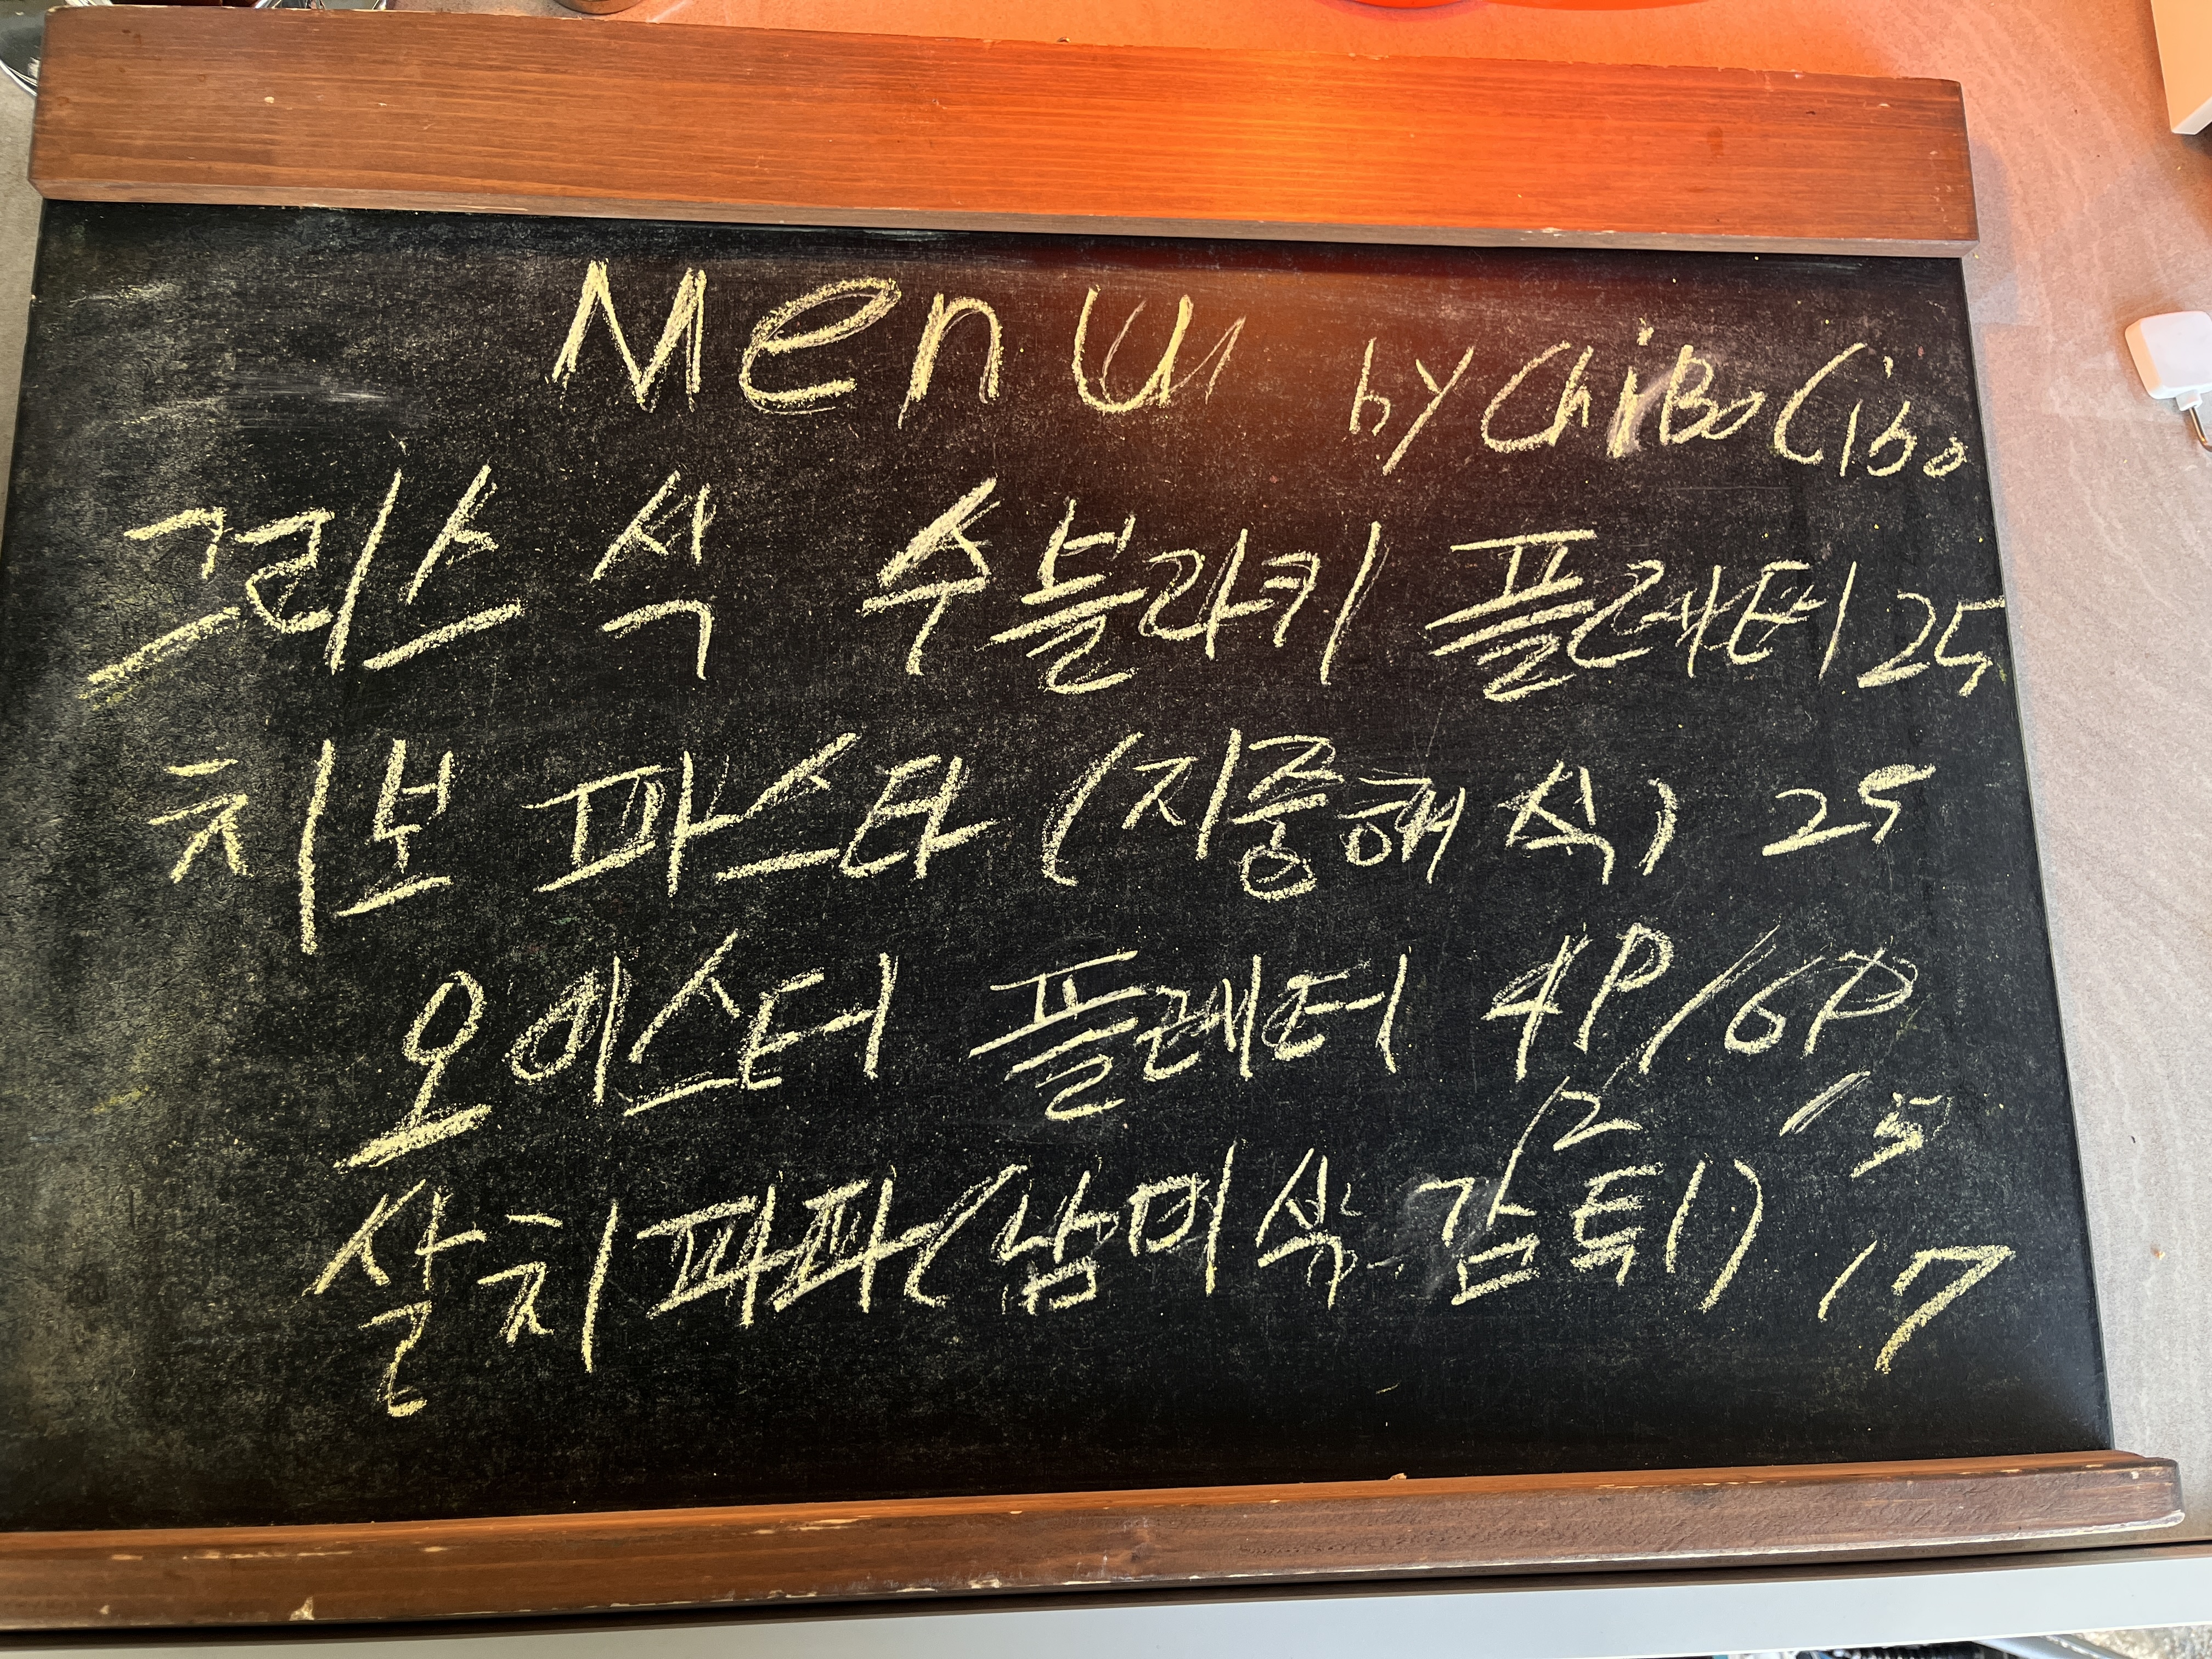 Menu by ChiBo Cibo
그리스 식 수블라키 플래터 25
치보 파스타 (지중해식) 25
오이스터 플래터 4P/6P
12 15
살치파파(남미식 감튀) 17